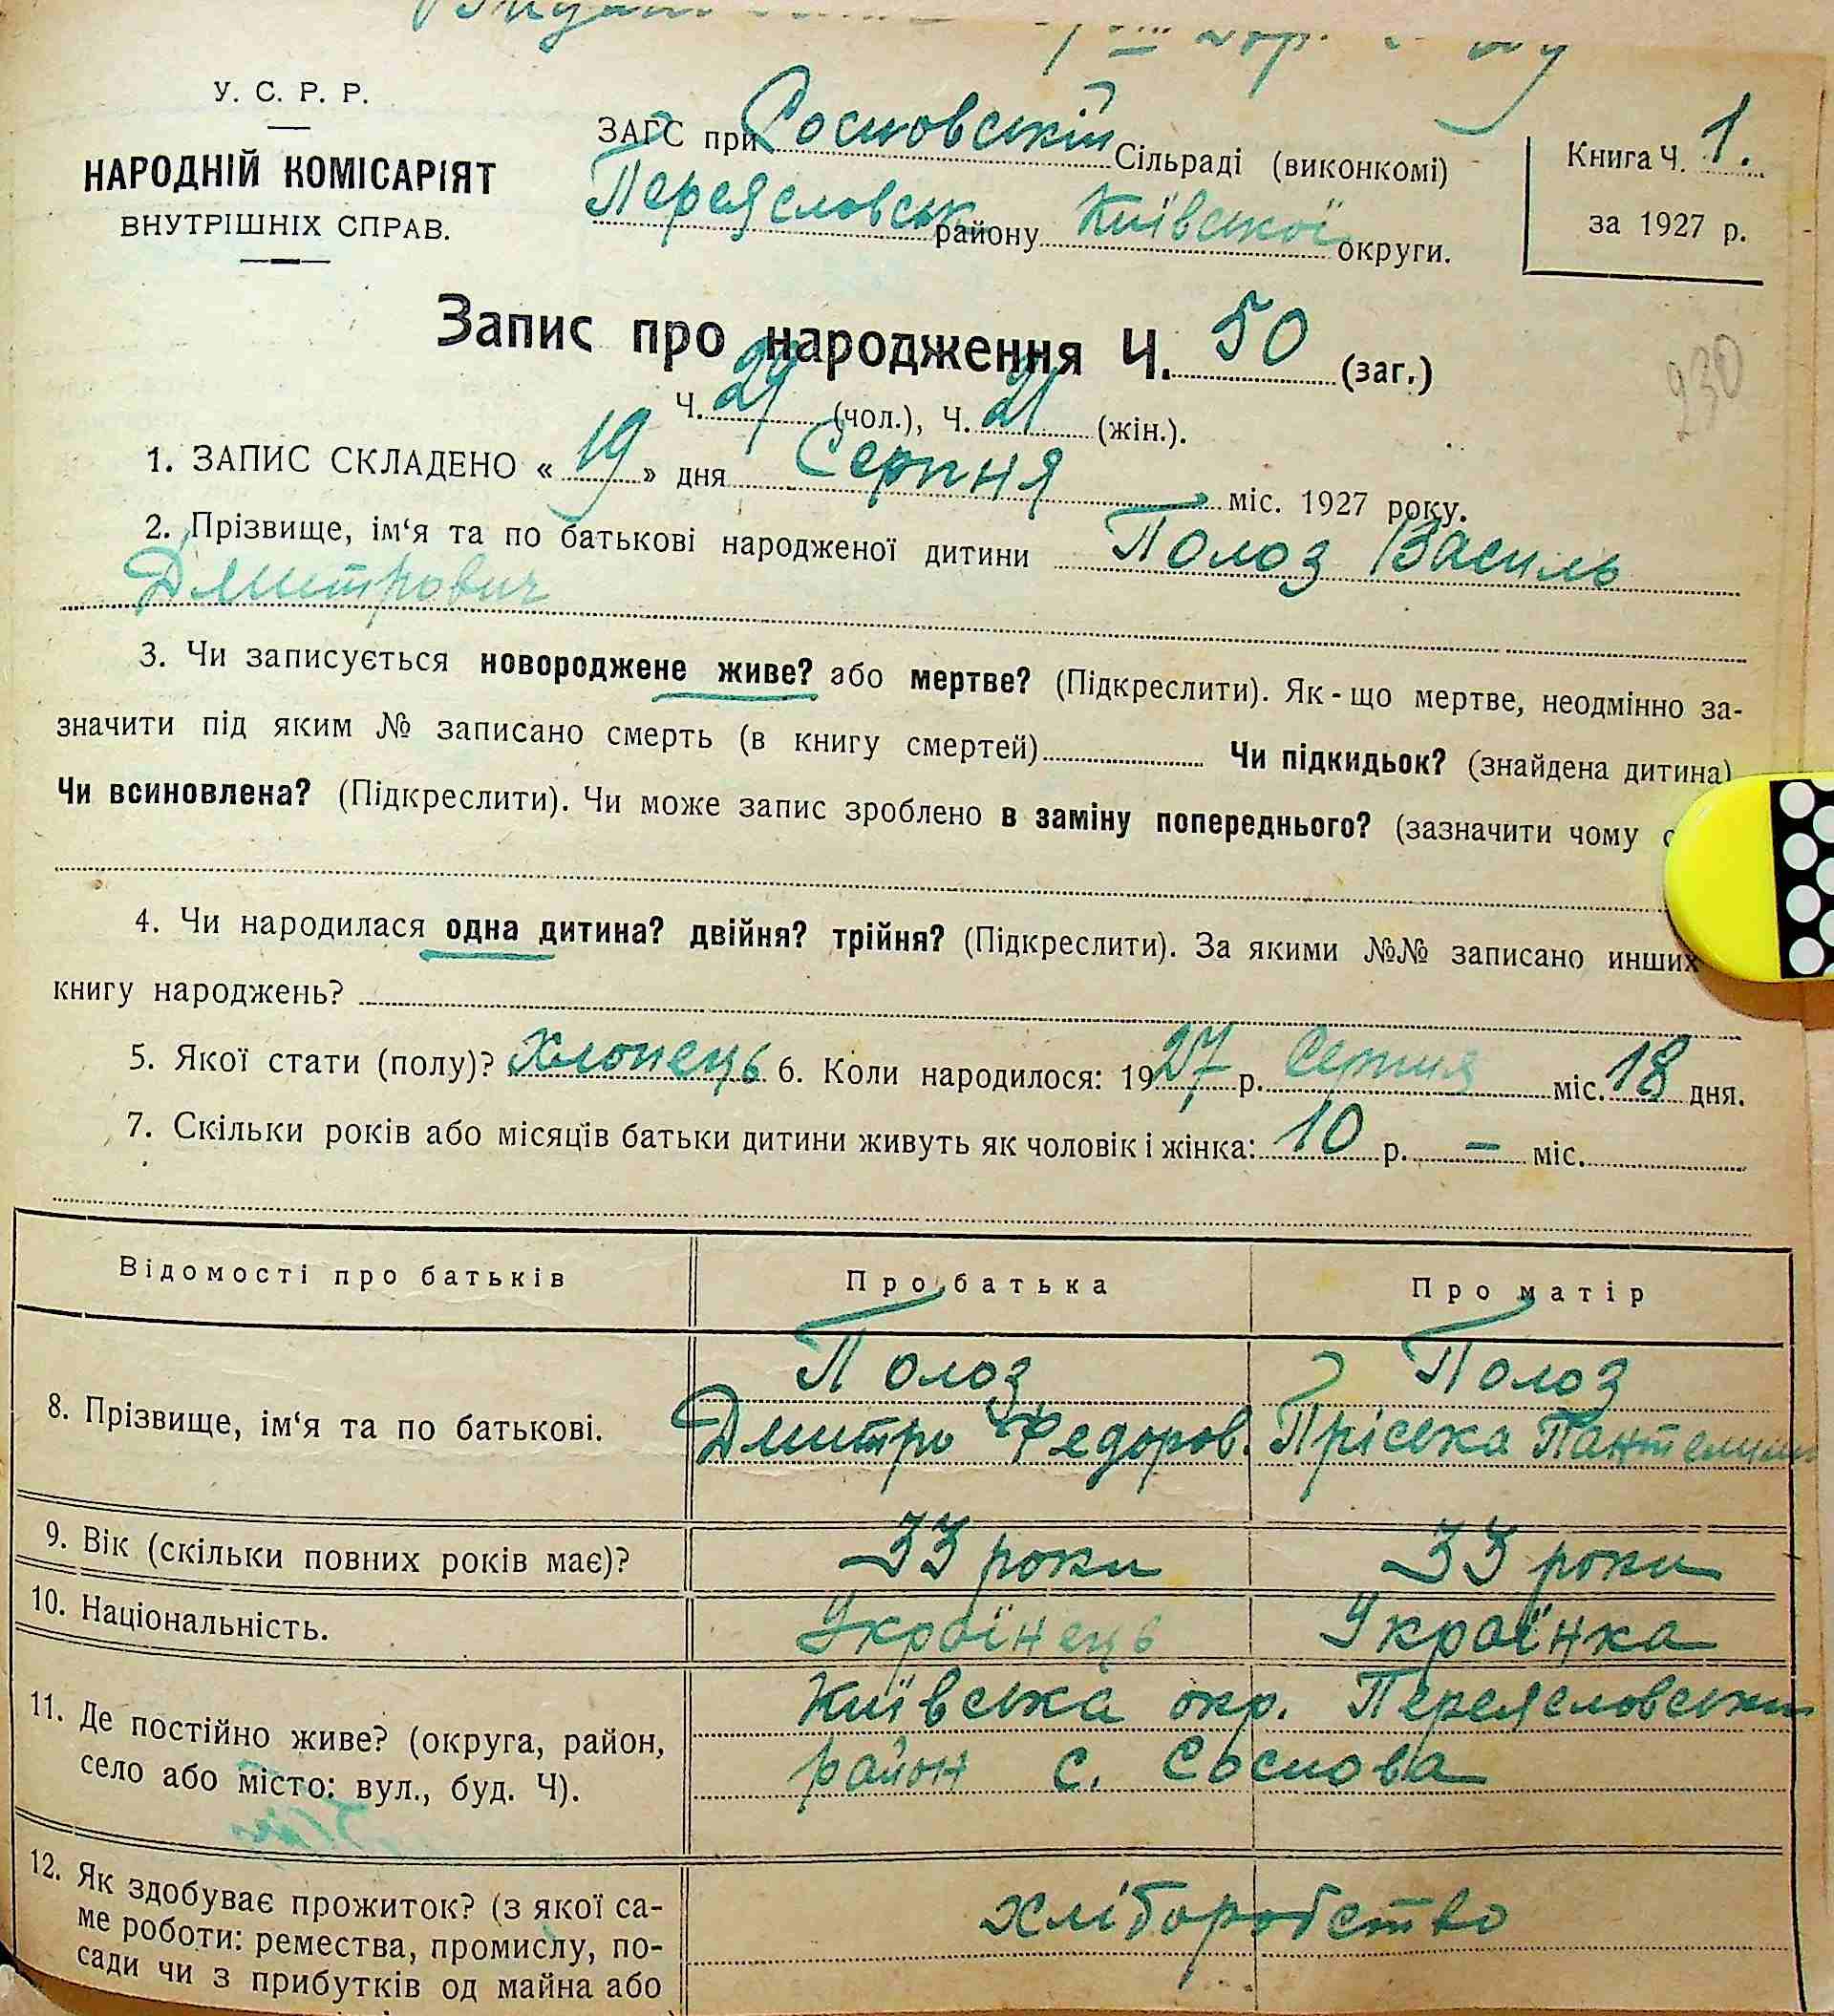 У. С. Р. Р.
НАРОДНІЙ КОМІСАРІЯТ
ВНУТРІШНІХ СПРАВ.
ЗАГС при Сосновській Сільраді (виконкомі)
Переясловськ району Київської округи.
Книга Ч. 1.
за 1927 р.
Запис про народження Ч. 50 (заг.)
230
Ч. 29 (чол.), Ч. 21 (жін.).
1. ЗАПИС СКЛАДЕНО « 19 » дня Серпня міс. 1927 року.
2. Прізвище, ім‘я та по батькові народженої дитини Полоз Василь
Дмитрович
3. Чи записується новороджене живе? або мертве? (Підкреслити). Як-що мертве, неодмінно за-
значити під яким № записано смерть (в книгу смертей) Чи підкидьок? (знайдена дитина)
Чи всиновлена? (Підкреслити). Чи може запис зроблено в заміну попереднього? (зазначити чому
4. Чи народилася одна дитина? двійня? трійня? (Підкреслити). За якими №№ записано инших
книгу народжень?
5. Якої стати (полу)? Хлопець 6. Коли народилося: 1927 р. Серпня міс. 18 дня.
7. Скільки років або місяців батьки дитини живуть як чоловік і жінка: 10 р. – міс.
Відомості про батьків Про батька Про матір
Полоз Полоз
8. Прізвище, ім‘я та по батькові. Дмитро Федоров. Пріська
9. Вік (скільки повних років має)? 33 роки 33 роки
10. Національність. Українець Українка
11. Де постійно живе? (округа, район, Київська окр. Переясловський
село або місто: вул., буд. Ч). район с. Соснова
12. Як здобуває прожиток? (з якої са- хліборобство
ме роботи: ремества, промислу, по-
сади чи з прибутків од майна або